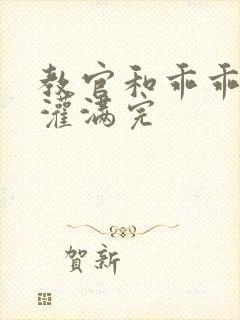 教官和乖乖
灌满完
賀新